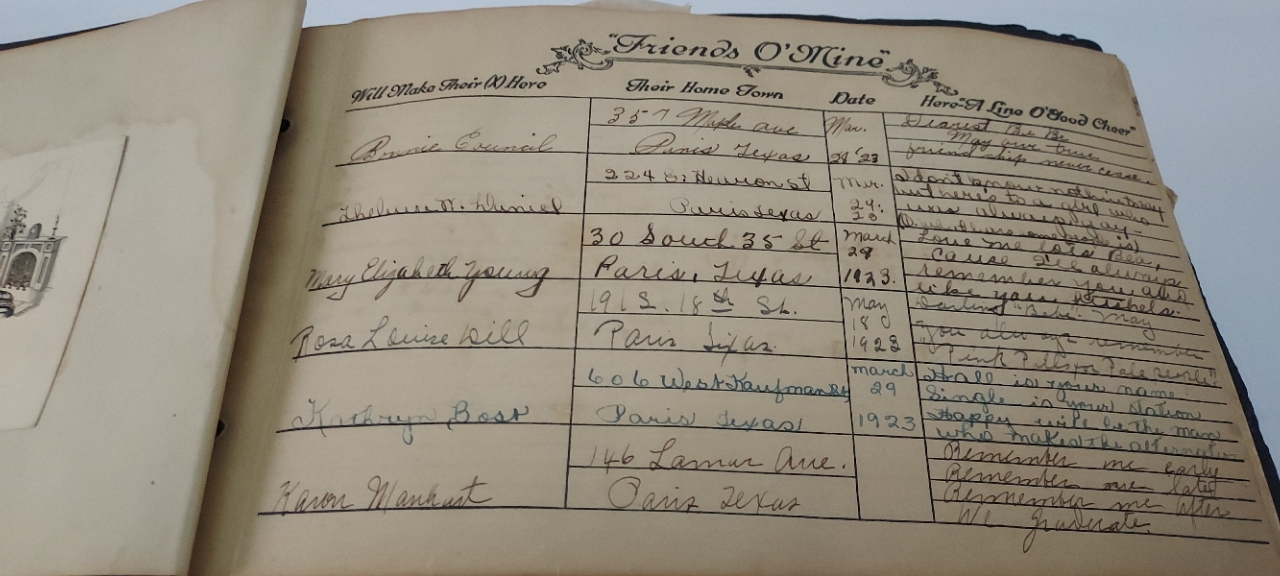 "Friends O'Mine"
Will Make Their (X) Here Their Home Town Date Here "A Line O'Good Cheer"
357 Maple ave Mar. Dearest Be Be
May our true
Bonnie Council Paris Texas 29 '23 friendship never cease.
224 Heuron st Mar. I don't know nothin to say
but here's to a girl who
Thelma W. Daniel Paris Texas 29. 23 was always gay
30 South 35 St March Love me lots Bea,
29 Cause I'll always
Mary Elizabeth Young Paris, Texas 1923. remember you and
like you
191 S. 18th St. May Darling "Bebe" May
18 You always remember
Rosa Louise Dill Paris Texas. 1923 "Pink Pills for Pale People"
606 West Kaufman St March Hall is your name
29 Single is your station
Kathryn Boss Paris Texas 1923 Happy will be the man
who makes the alteration
146 Lamar Ave. Remember me early
Remember me late
Karon Paris Texas Remember me After
We Graduate.